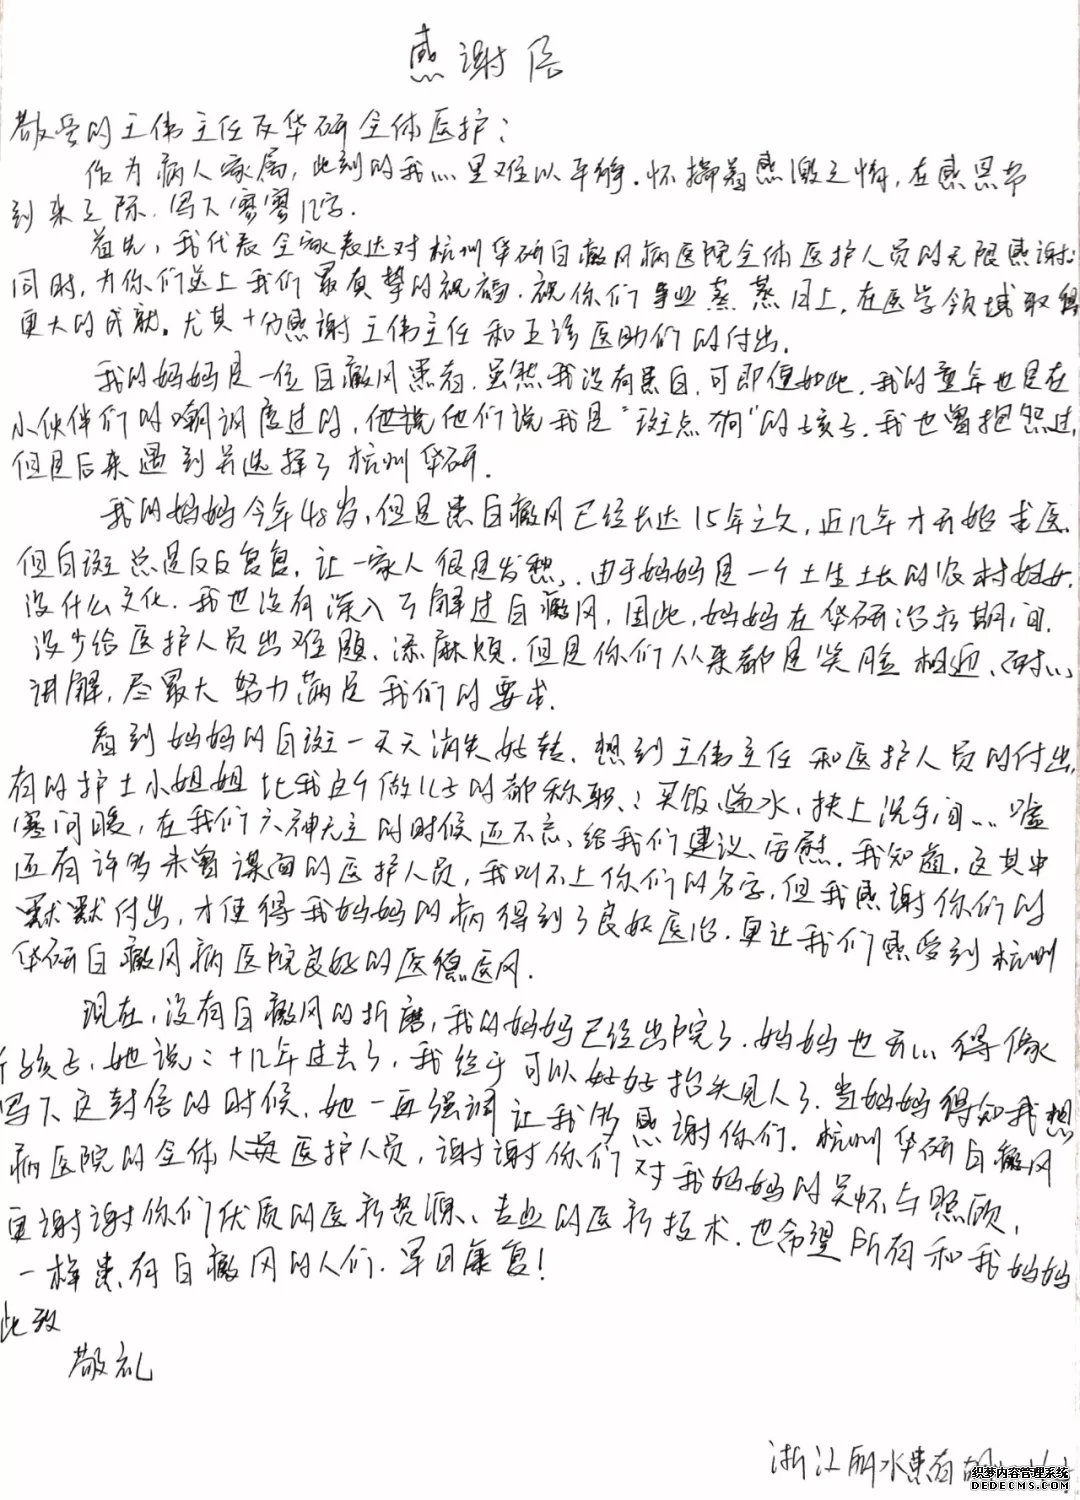 感谢信
敬爱的王伟主任及华研全体医护：
作为病人家属，此刻的我心里难以平静。怀揣着感激之情，在感恩节
到来之际，写下寥寥几字。
首先，我代表全家表达对杭州华研白癜风病医院全体医护人员的无限感谢
同时，为你们送上我们最真挚的祝福，祝你们事业蒸蒸日上，在医学领域取得
更大的成就。尤其十分感谢王伟主任和五诊医助们的付出。
我的妈妈是一位白癜风患者，虽然我没有患白，可即便如此，我的童年也是在
小伙伴们的嘲讽度过的，他们说我是“斑点狗”的孩子。我也曾抱怨过，
但是后来遇到并选择了杭州华研。
我的妈妈今年48岁，但是患白癜风已经长达15年之久，近几年才开始求医，
但白斑总是反反复复，让一家人很是发愁，由于妈妈是一个土生土长的农村妇女，
没什么文化，我也没有深入了解过白癜风，因此，妈妈在华研治疗期间，
没少给医护人员出难题、添麻烦，但是你们从来都是笑脸相迎、耐心
讲解，尽最大努力满足我们的要求。
看到妈妈的白斑一天天消失好转，想到王伟主任和医护人员的付出，
有的护士小姐姐比我这个做儿子的都称职：买饭递水，扶上洗手间…嘘
寒问暖，在我们六神无主的时候还不忘给我们建议、安慰，我知道，这其中
还有许多未曾谋面的医护人员，我叫不上你们的名字，但我感谢你们的
默默付出，才使得我妈妈的病得到了良好医治，更让我们感受到杭州
华研白癜风病医院良好的医德医风。
现在，没有白癜风的折磨，我的妈妈已经出院了，妈妈也开心得像
个孩子，她说：十几年过去了，我终于可以好好抬头见人了。当妈妈得知我想
写下这封信的时候，她一再强调让我多感谢你们，杭州华研白癜风
病医院的全体医护人员，谢谢你们对我妈妈的关怀与照顾，
更谢谢你们优质的医疗资源、专业的医疗技术，也希望所有和我妈妈
一样患有白癜风的人们，早日康复！
此致
敬礼
浙江丽水患者胡
织梦内容管理系统
DEDECMS.COM